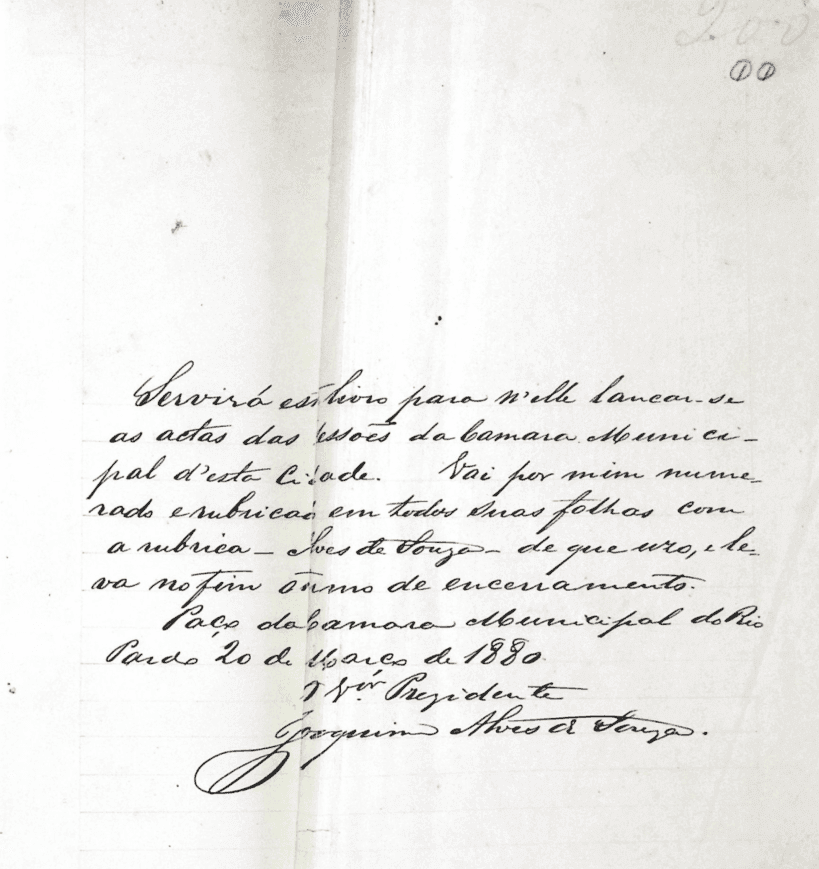 200
Servirá este livro para n'elle lancar-se
as actas das sessões da Camara Munici-
pal d'esta Cidade. Vai por mim nume-
rado e rubricado em todos suas folhas com
a rubrica - Alves de Souza - de que uzo, e le-
va no fim o termo de encerramento.
Paço da Camara Municipal do Rio
Pardo 20 de Março de 1880.
O Vor. Prezidente
Joaquim Alves de Souza.